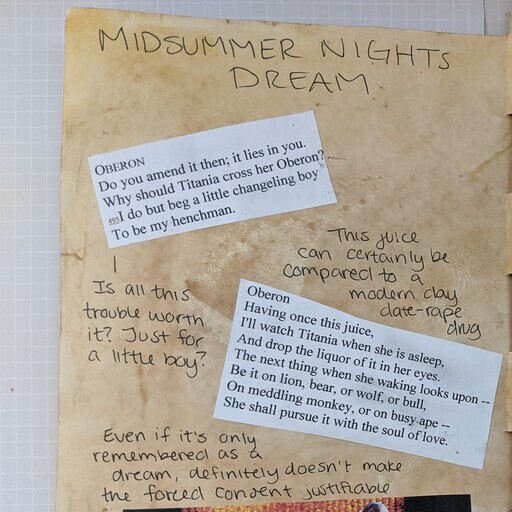 MIDSUMMER NIGHTS
DREAM
OBERON
Do you amend it then; it lies in you.
Why should Titania cross her Oberon?
495I do but beg a little changeling boy
To be my henchman.
Is all this
trouble worth
it? Just for
a little boy?
This juice
can certainly be
compared to a
modern day
date-rape
drug
Oberon
Having once this juice,
I'll watch Titania when she is asleep,
And drop the liquor of it in her eyes.
The next thing when she waking looks upon --
Be it on lion, bear, or wolf, or bull,
On meddling monkey, or on busy ape --
She shall pursue it with the soul of love.
Even if it's only
remembered as a
dream, definitely doesn't make
the forced consent justifiable